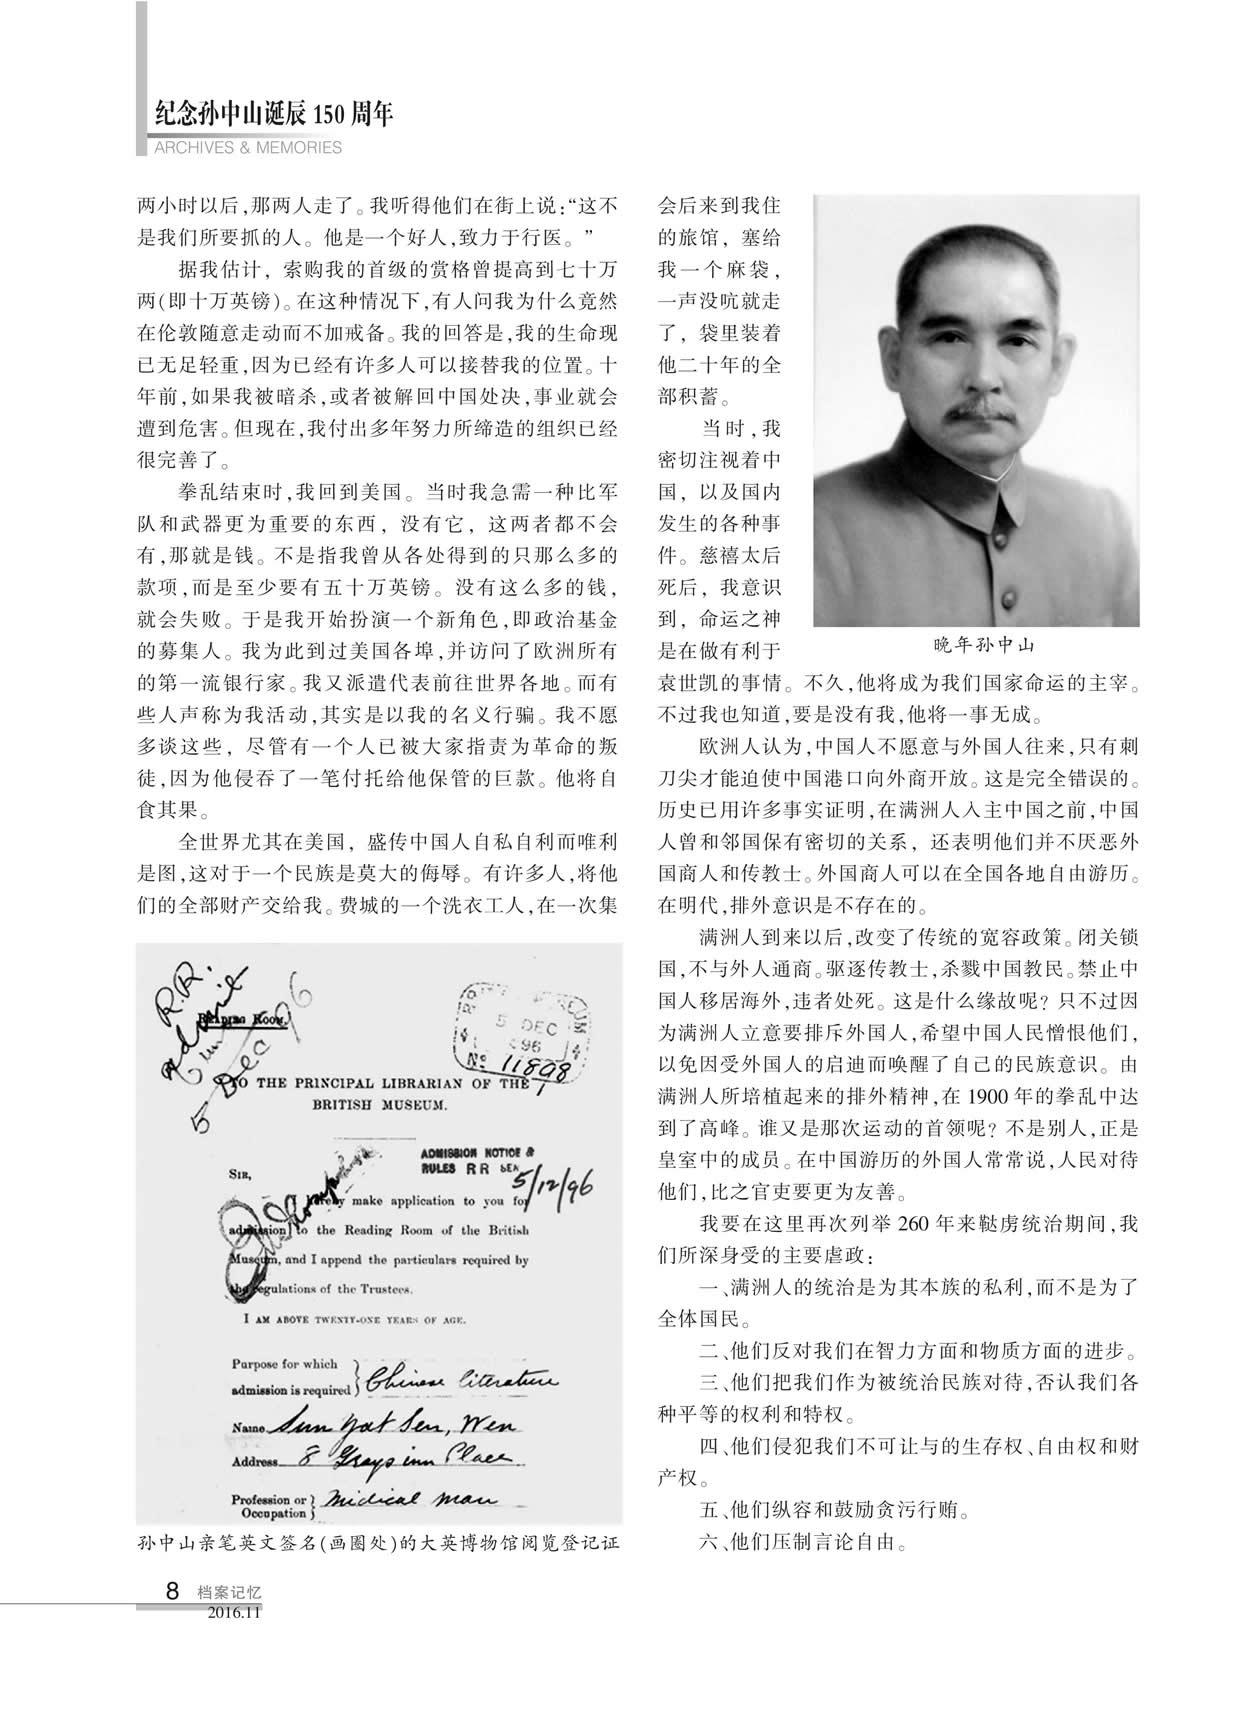 纪念孙中山诞辰 150 周年
ARCHIVES & MEMORIES
两小时以后,那两人走了。我听得他们在街上说:“这不
是我们所要抓的人。他是一个好人,致力于行医。”
据我估计，索购我的首级的赏格曾提高到七十万
两(即十万英镑)。在这种情况下,有人问我为什么竟然
在伦敦随意走动而不加戒备。我的回答是,我的生命现
已无足轻重,因为已经有许多人可以接替我的位置。十
年前,如果我被暗杀,或者被解回中国处决,事业就会
遭到危害。但现在,我付出多年努力所缔造的组织已经
很完善了。
拳乱结束时,我回到美国。当时我急需一种比军
队和武器更为重要的东西，没有它，这两者都不会
有,那就是钱。不是指我曾从各处得到的只那么多的
款项,而是至少要有五十万英镑。没有这么多的钱，
就会失败。于是我开始扮演一个新角色,即政治基金
的募集人。我为此到过美国各埠,并访问了欧洲所有
的第一流银行家。我又派遣代表前往世界各地。而有
些人声称为我活动,其实是以我的名义行骗。我不愿
多谈这些，尽管有一个人已被大家指责为革命的叛
徒,因为他侵吞了一笔付托给他保管的巨款。他将自
食其果。
全世界尤其在美国，盛传中国人自私自利而唯利
是图,这对于一个民族是莫大的侮辱。有许多人,将他
们的全部财产交给我。费城的一个洗衣工人,在一次集
R.R.
READING ROOM.
5 Dec 96
5 DEC
96
No 11898
TO THE PRINCIPAL LIBRARIAN OF THE
BRITISH MUSEUM.
ADMISSION NOTICE &
RULES RR SEN
5/12/96
SIR,
I hereby make application to you for
admission to the Reading Room of the British
Museum, and I append the particulars required by
the regulations of the Trustees.
I AM ABOVE TWENTY-ONE YEARS OF AGE.
Purpose for which
admission is required } Chinese literature
Name Sun Yat Sen, Wen
Address 8 Grays inn Place
Profession or
Occupation } Medical man
孙中山亲笔英文签名(画圈处)的大英博物馆阅览登记证
会后来到我住
的旅馆，塞给
我一个麻袋，
一声没吭就走
了，袋里装着
他二十年的全
部积蓄。
当时,我
密切注视着中
国，以及国内
发生的各种事
件。慈禧太后
死后，我意识
到，命运之神
是在做有利于
晚年孙中山
袁世凯的事情。不久,他将成为我们国家命运的主宰。
不过我也知道,要是没有我,他将一事无成。
欧洲人认为,中国人不愿意与外国人往来,只有刺
刀尖才能迫使中国港口向外商开放。这是完全错误的。
历史已用许多事实证明,在满洲人入主中国之前,中国
人曾和邻国保有密切的关系，还表明他们并不厌恶外
国商人和传教士。外国商人可以在全国各地自由游历。
在明代,排外意识是不存在的。
满洲人到来以后,改变了传统的宽容政策。闭关锁
国,不与外人通商。驱逐传教士,杀戮中国教民。禁止中
国人移居海外,违者处死。这是什么缘故呢？只不过因
为满洲人立意要排斥外国人,希望中国人民憎恨他们，
以免因受外国人的启迪而唤醒了自己的民族意识。由
满洲人所培植起来的排外精神,在 1900 年的拳乱中达
到了高峰。谁又是那次运动的首领呢？不是别人,正是
皇室中的成员。在中国游历的外国人常常说,人民对待
他们,比之官吏要更为友善。
我要在这里再次列举 260 年来鞑虏统治期间,我
们所深身受的主要虐政：
一、满洲人的统治是为其本族的私利,而不是为了
全体国民。
二、他们反对我们在智力方面和物质方面的进步。
三、他们把我们作为被统治民族对待,否认我们各
种平等的权利和特权。
四、他们侵犯我们不可让与的生存权、自由权和财
产权。
五、他们纵容和鼓励贪污行贿。
六、他们压制言论自由。
8 档案记忆
2016.11